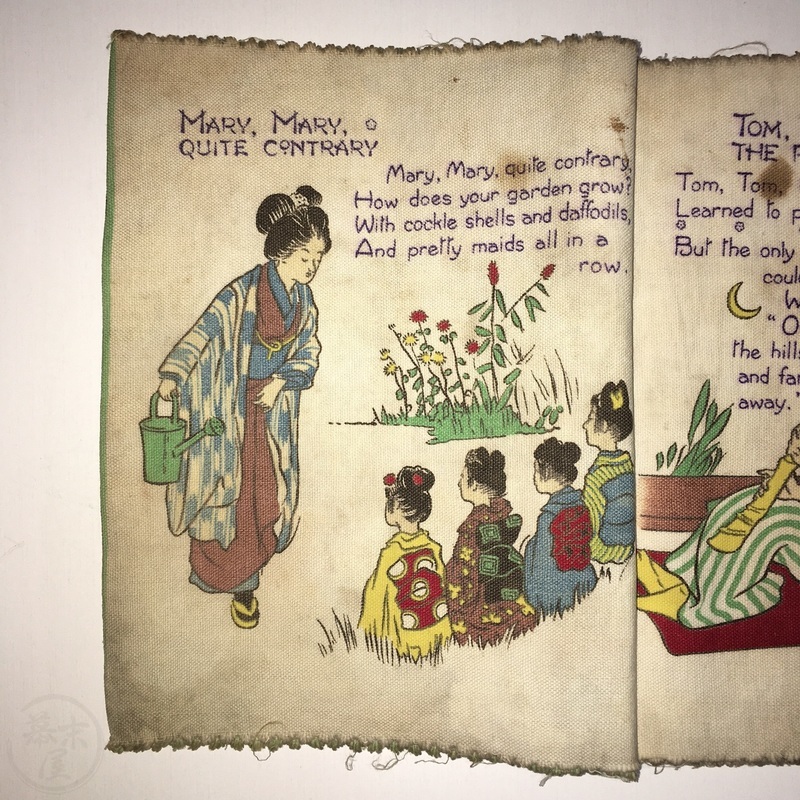 MARY, MARY,
QUITE CONTRARY
Mary, Mary, quite contrary,
How does your garden grow?
With cockle shells and daffodils,
And pretty maids all in a
row.
TOM,
THE
Tom, Tom,
Learned to
But the only
"O
the hills
and
away."